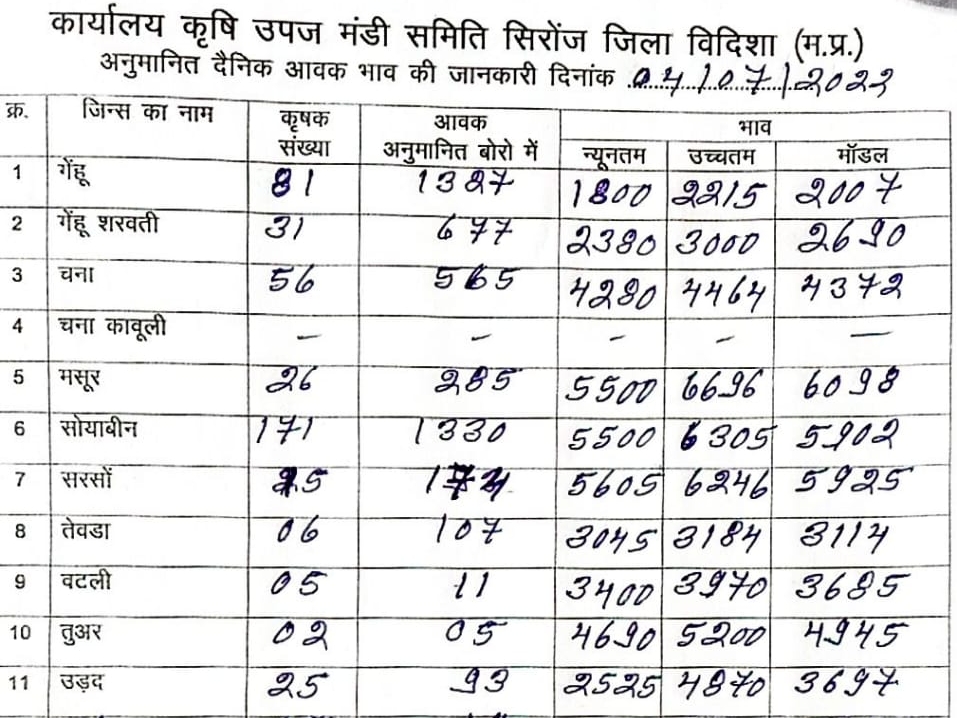 कार्यालय कृषि उपज मंडी समिति सिरोंज जिला विदिशा (म.प्र.)
अनुमानित दैनिक आवक भाव की जानकारी दिनांक 04/07/2022
क्र. जिन्स का नाम कृषक संख्या आवक अनुमानित बोरो में भाव
न्यूनतम उच्चतम मॉडल
1 गेंहू 81 1327 1800 2215 2007
2 गेंहू शरवती 31 677 2380 3000 2690
3 चना 56 565 4280 4464 4372
4 चना कावूली – – – – –
5 मसूर 26 285 5500 6696 6098
6 सोयाबीन 171 1330 5500 6305 5902
7 सरसों 25 5605 6246 5925
8 तेवडा 06 107 3045 3184 3114
9 वटली 05 11 3400 3970 3685
10 तुअर 02 05 4690 5200 4945
11 उड़द 25 93 2525 4870 3697